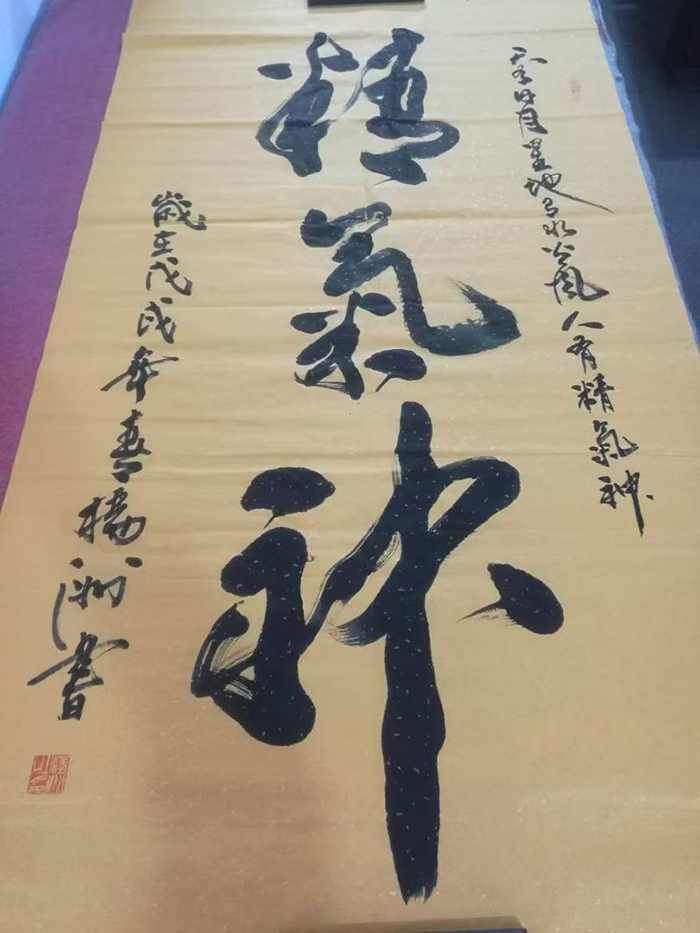 天有日月星地有水火風人有精氣神
精氣神
歲在戊戌年春楊洲書